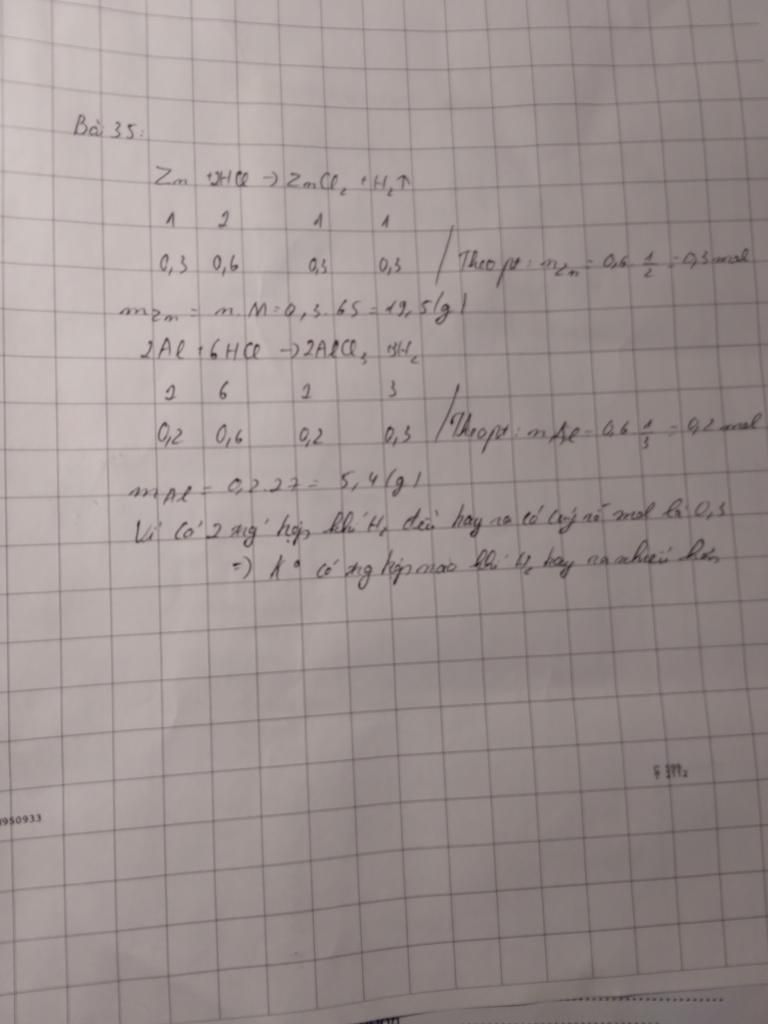 Bài 35:
Zn + 2HCl → ZnCl₂ + H₂↑
1 2 1 1
0,3 0,6 0,3 0,3 / Theo pt: nZn = 0,6 · 1/2 = 0,3 mol
mZn = n.M = 0,3.65 = 19,5 (g)
2Al + 6HCl → 2AlCl₃ + 3H₂
2 6 2 3
0,2 0,6 0,2 0,3 / Theo pt: nAl = 0,6 · 1/3 = 0,2 mol
mAl = 0,2.27 = 5,4 (g)
Vì có 2 hợp khí H₂ đều bay ra có cùng số mol là 0,3
=> K° có hợp nào khí H₂ bay ra nhiều hơn
950933